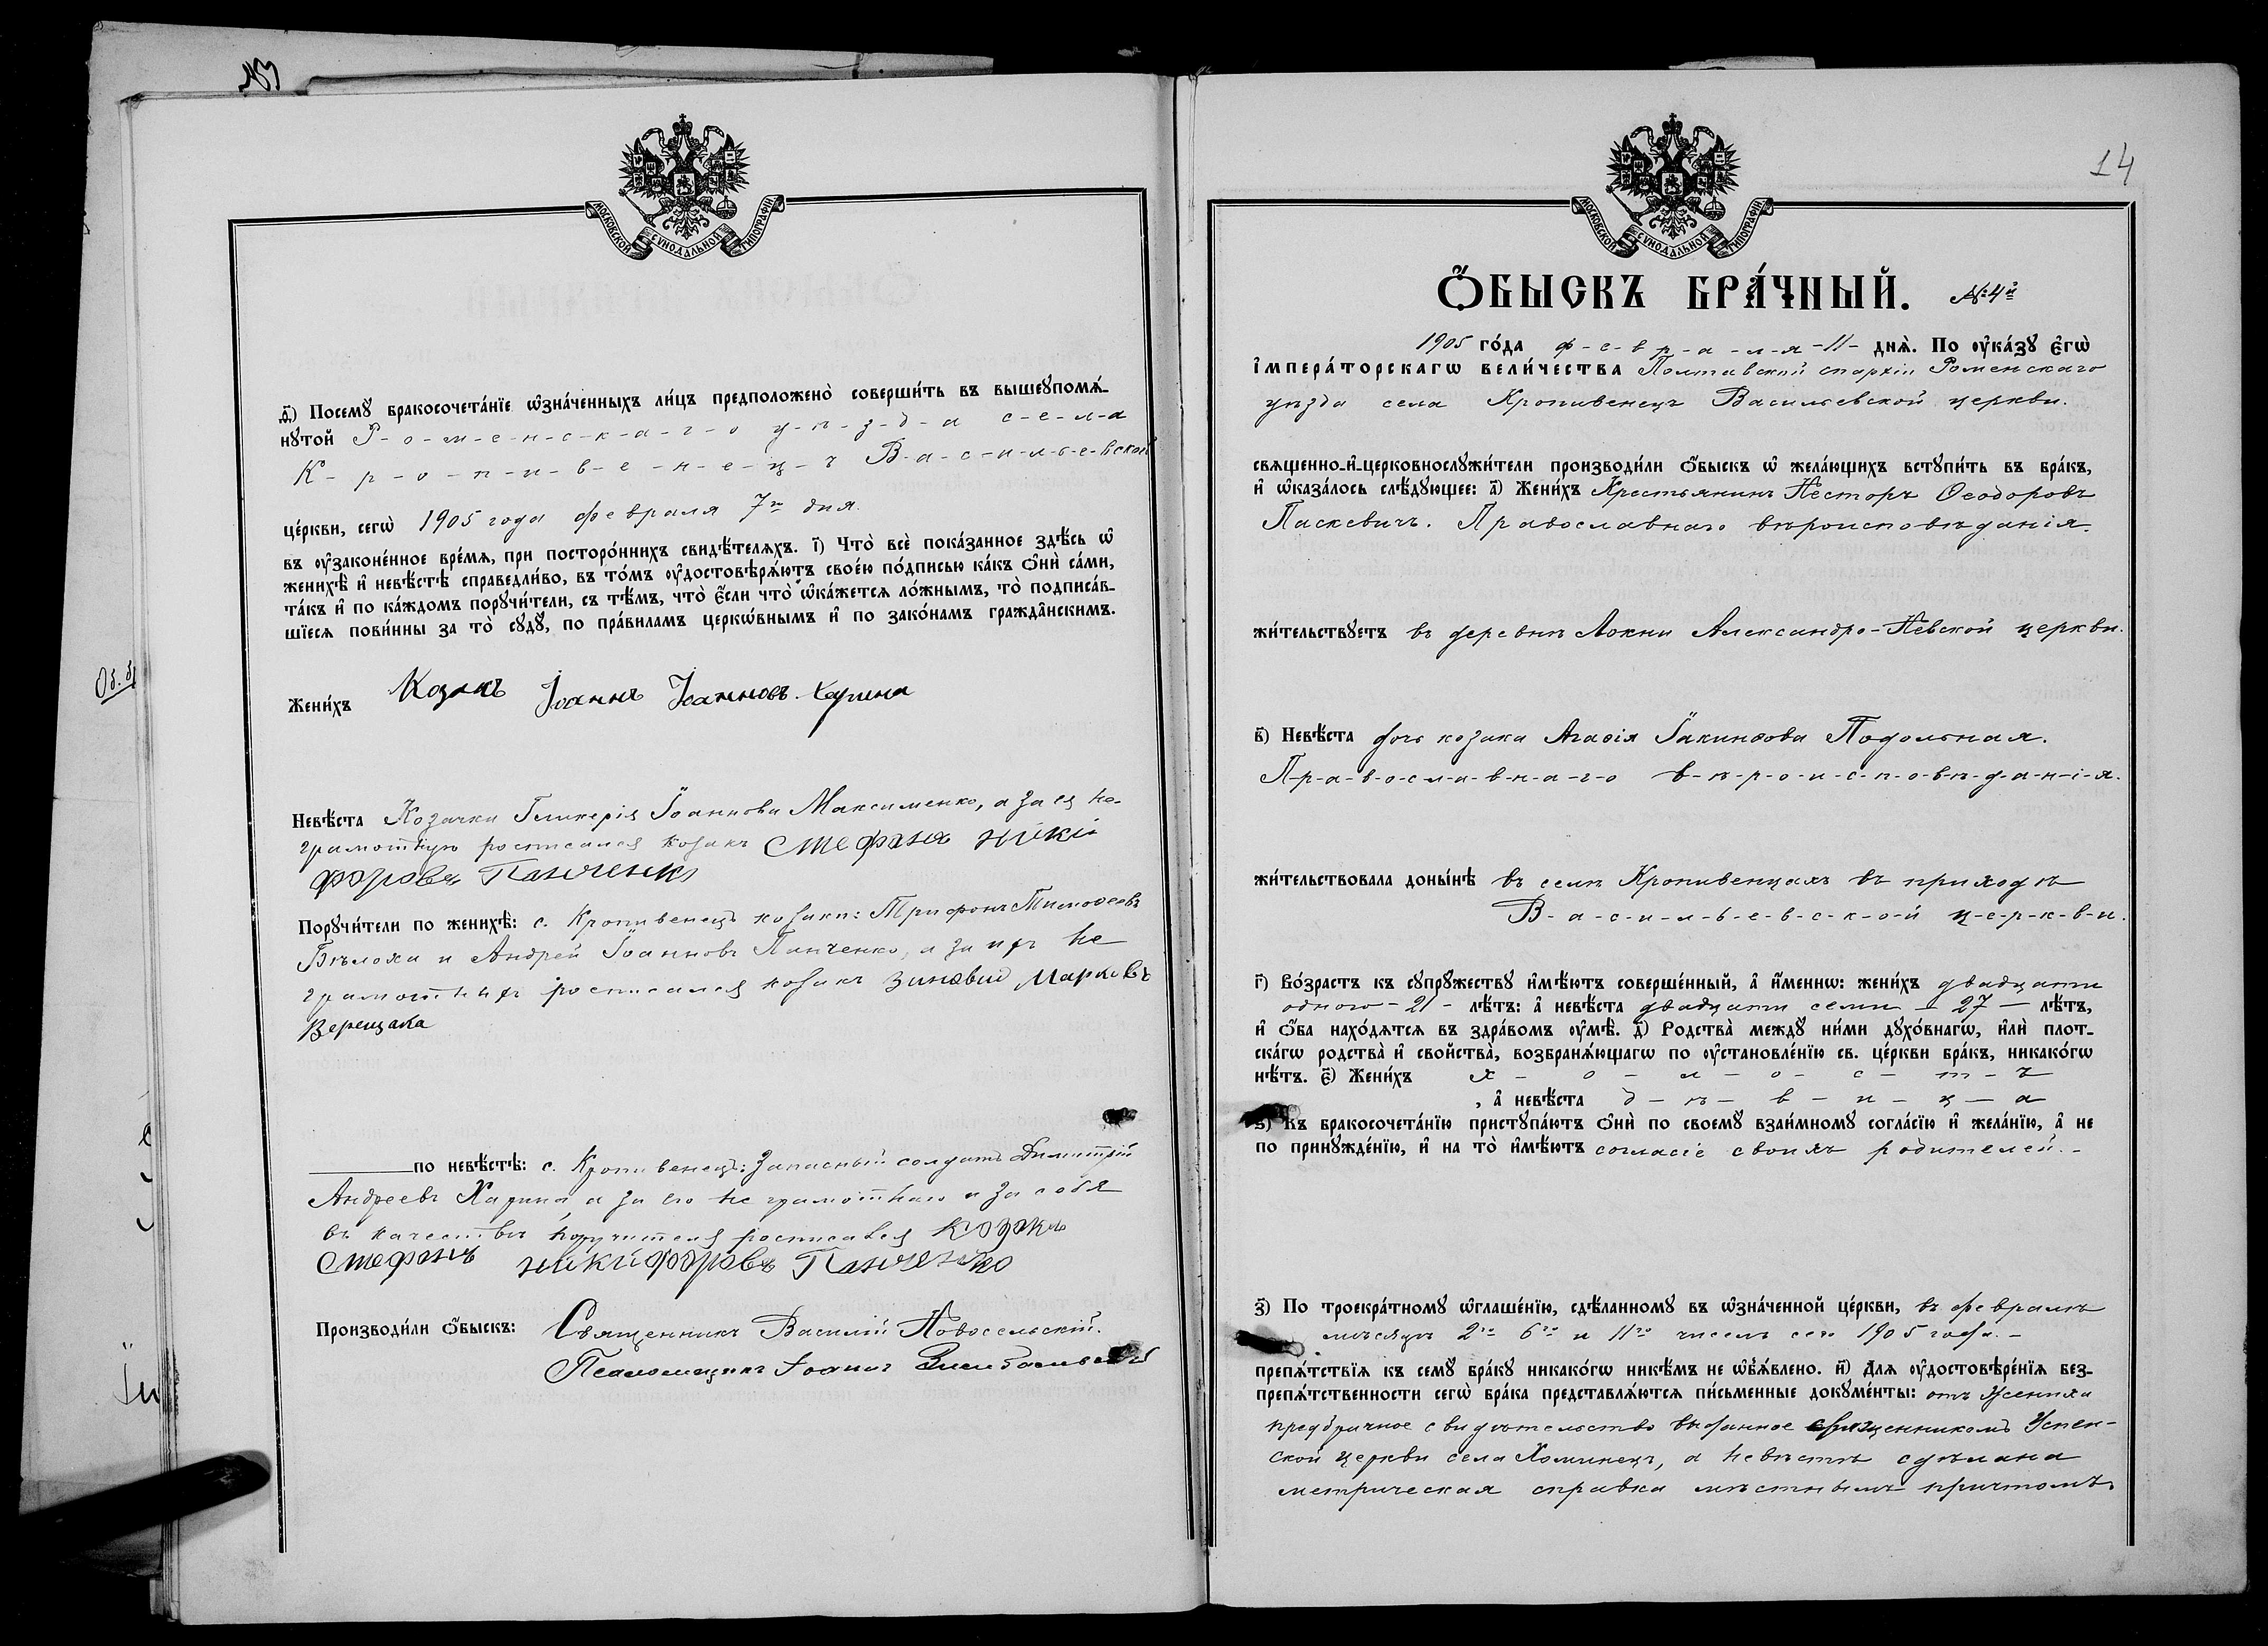 МОСКОВСКОЙ СѴНОДАЛЬНОЙ ТИПОГРАФІИ
ѳ҃) Посемꙋ̀ бракосочета́нїе ѡ҆зна́ченныхъ ли́цъ предположено̀ соверши́ть въ вышеꙋпомѧ́-
нꙋтой Р-о-м-е-н-с-к-а-г-о у-ѣ-з-д-а с-е-л-а
К-р-о-п-и-в-е-н-е-ц-ъ В-а-с-и-л-ь-е-вской
це́ркви, сегѡ̀ 1905 года февраля 7го дня.
въ ᲂу҆законе́нное вре́мѧ, при посторо́ннихъ свидѣ́телѧхъ. і҃) Что̀ всѐ пока́занное здѣ́сь ѡ҆
женихѣ̀ и҆ невѣ́стѣ справедли́во, въ то́мъ ᲂу҆достовѣрѧ́ютъ свое́ю по́дписью ка́къ ѻ҆нѝ са́ми,
та́къ и҆ по ка́ждомъ порꙋчи́тели, съ тѣ́мъ, что̀ є҆́сли что̀ ѡ҆ка́жетсѧ ло́жнымъ, то̀ подписа́в-
шїесѧ пови́нны за то̀ сꙋдꙋ̀, по пра́виламъ церкѡ́внымъ и҆ по зако́намъ гражда̑нскимъ.
Жени́хъ Козакъ Іоаннъ Іоанновъ Харина
Невѣ́ста Козачка Гликерія Іоаннова Максименко, а за ея не-
грамотную росписался козакъ Стефанъ Никі
форовъ Панченко
Порꙋчи́тели по женихѣ̀: с. Кропивенецъ козаки: Трифонъ Тимофеевъ
Бѣлоха и Андрей Іоанновъ Панченко, а за ихъ не
грамотныхъ росписался козакъ Зиновий Марковъ
Верещака
по невѣ́стѣ: с. Кропивенецъ: Запасный солдатъ Димитрій
Андреевъ Харина а за его не грамотнаго и за собя
въ качествѣ поручителя росписался козакъ
Стефанъ Никифоровъ Панченко
Производи́ли ѻ҆́быскъ: Священникъ Василій Новосельскій.
Псаломщикъ Іоаннъ
14
МОСКОВСКОЙ СѴНОДАЛЬНОЙ ТИПОГРАФІИ
Ѻ҆́БЫСКЪ БРА́ЧНЫЙ. №4й
1905 го́да ф-е-в-р-а-л-я-11- днѧ̀. По ᲂу҆ка́зꙋ є҆гѡ̀
і҆мпера́торскагѡ вели́чества Полтавской епархіи Роменскаго
уѣзда села Кропивенецъ Васильевской церкви.
свѧщенно-и҆-церковнослꙋжи́тели производи́ли ѻ҆́быскъ ѡ҆ жела́ющихъ встꙋпи́ть въ бра́къ,
и҆ ѡ҆каза́лось слѣ́дꙋющее: а҃) Жени́хъ Крестьянинъ Несторъ Ѳеодоровъ
Паскевичъ. Православнаго вѣроисповѣданія.
жи́тельствꙋетъ въ деревнѣ Локни Александро-Невской церкви.
в҃) Невѣ́ста дочь козака Агафія Іакинѳова Подольная.
П-р-а-в-о-с-л-а-в-н-а-г-о в-ѣ-р-о-и-с-п-о-в-ѣ-д-а-н-і-я.
жи́тельствовала доны́нѣ въ селѣ Кропивенцахъ въ приходѣ
В-а-с-и-л-ь-е-в-с-к-о-й ц-е-р-к-в-и.
г҃) Во́зрастъ къ сꙋпрꙋ́жествꙋ и҆мѣ́ютъ соверше́нный, а҆ и҆́меннѡ: жени́хъ двадцати
одного - 21 - лѣ́тъ: а҆ невѣ́ста двадцати семи - 27 - лѣ́тъ,
и҆ ѻ҆́ба нахо́дѧтсѧ въ здра́вомъ ᲂу҆мѣ̀. д҃) Родства̀ междꙋ̀ ни́ми дꙋхо́внагѡ, и҆лѝ плот-
ска́гѡ родства̀ и҆ свойства̀, возбранѧ́ющагѡ по ᲂу҆становле́нїю св. це́ркви бра́къ, никако́гѡ
нѣ́тъ. є҃) Жени́хъ х-о-л-о-с-т-ъ
, а҆ невѣ́ста д-ѣ-в-и-ц-а
ѕ҃) Къ бракосочета́нїю пристꙋпа́ютъ ѻ҆нѝ по своемꙋ̀ взаи́мномꙋ согла́сїю и҆ жела́нїю, а҆ не
по принꙋжде́нїю, и҆ на то̀ и҆мѣ́ютъ согласіе своихъ родителей.-
з҃) По троекра́тномꙋ ѡ҆глаше́нїю, сдѣ́ланномꙋ въ ѡ҆зна́ченной це́ркви, въ февралѣ
мѣсяцѣ 2го 6го и 11го чиселъ сего 1905 года.-
препѧ́тствїѧ къ семꙋ̀ бра́кꙋ никако́гѡ никѣ́мъ не ѡ҆б̾ѧ́влено. и҃) Длѧ ᲂу҆достовѣре́нїѧ без-
препѧ́тственности сегѡ̀ бра́ка представлѧ́ютсѧ пи́сьменные докꙋме́нты: отъ жениха
предбрачное свидѣтельство выданное священникомъ Успен-
ской церкви села Хоминецъ, а невѣстѣ сдѣлана
метрическая справка мѣстнымъ причтомъ.